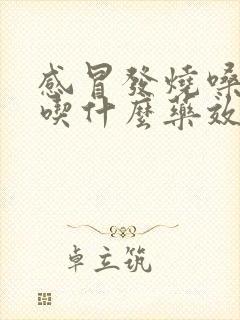 感冒發燒嗓
喫什麼藥效
卓立筑